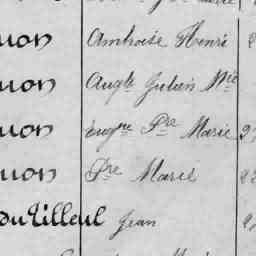 uon Ambroise Henri
uon Augte Julien Mie
uon Eugne Pre Marie 2
uon Pre Marie 2
du Tilleul Jean